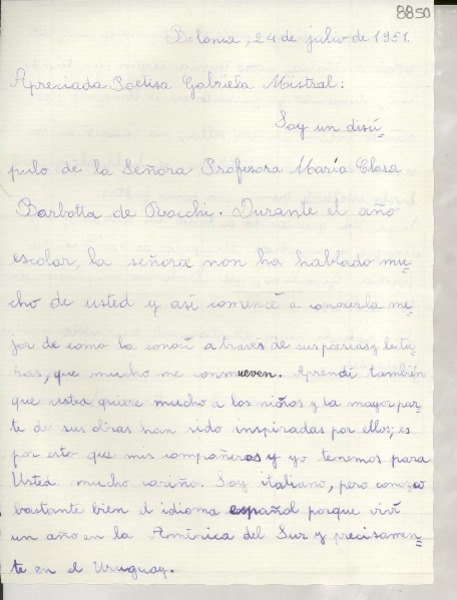 8850
Bolonia, 24 de julio de 1951.
Apreciada Poetisa Gabriela Mistral:
Soy un discí=
pulo de la Señora Profesora María Elosa
Barbotta de Rocchi. Durante el año
escolar, la señora non ha hablado mu=
cho de usted y así comencé a conocerla me=
jor de como la conocí a traves de sus poesias y lectu=
ras, que mucho me conmueven. Aprendí también
que usted quiere mucho a los niños y la mayor par=
te de sus obras han sido inspiradas por ellos; es
por esto que mis compañeros y yo tenemos para
Usted mucho cariño. Soy italiano, pero conozco
bastante bien el idioma español porque viví
un año en la América del Sur y precisamen=
te en el Uruguay.